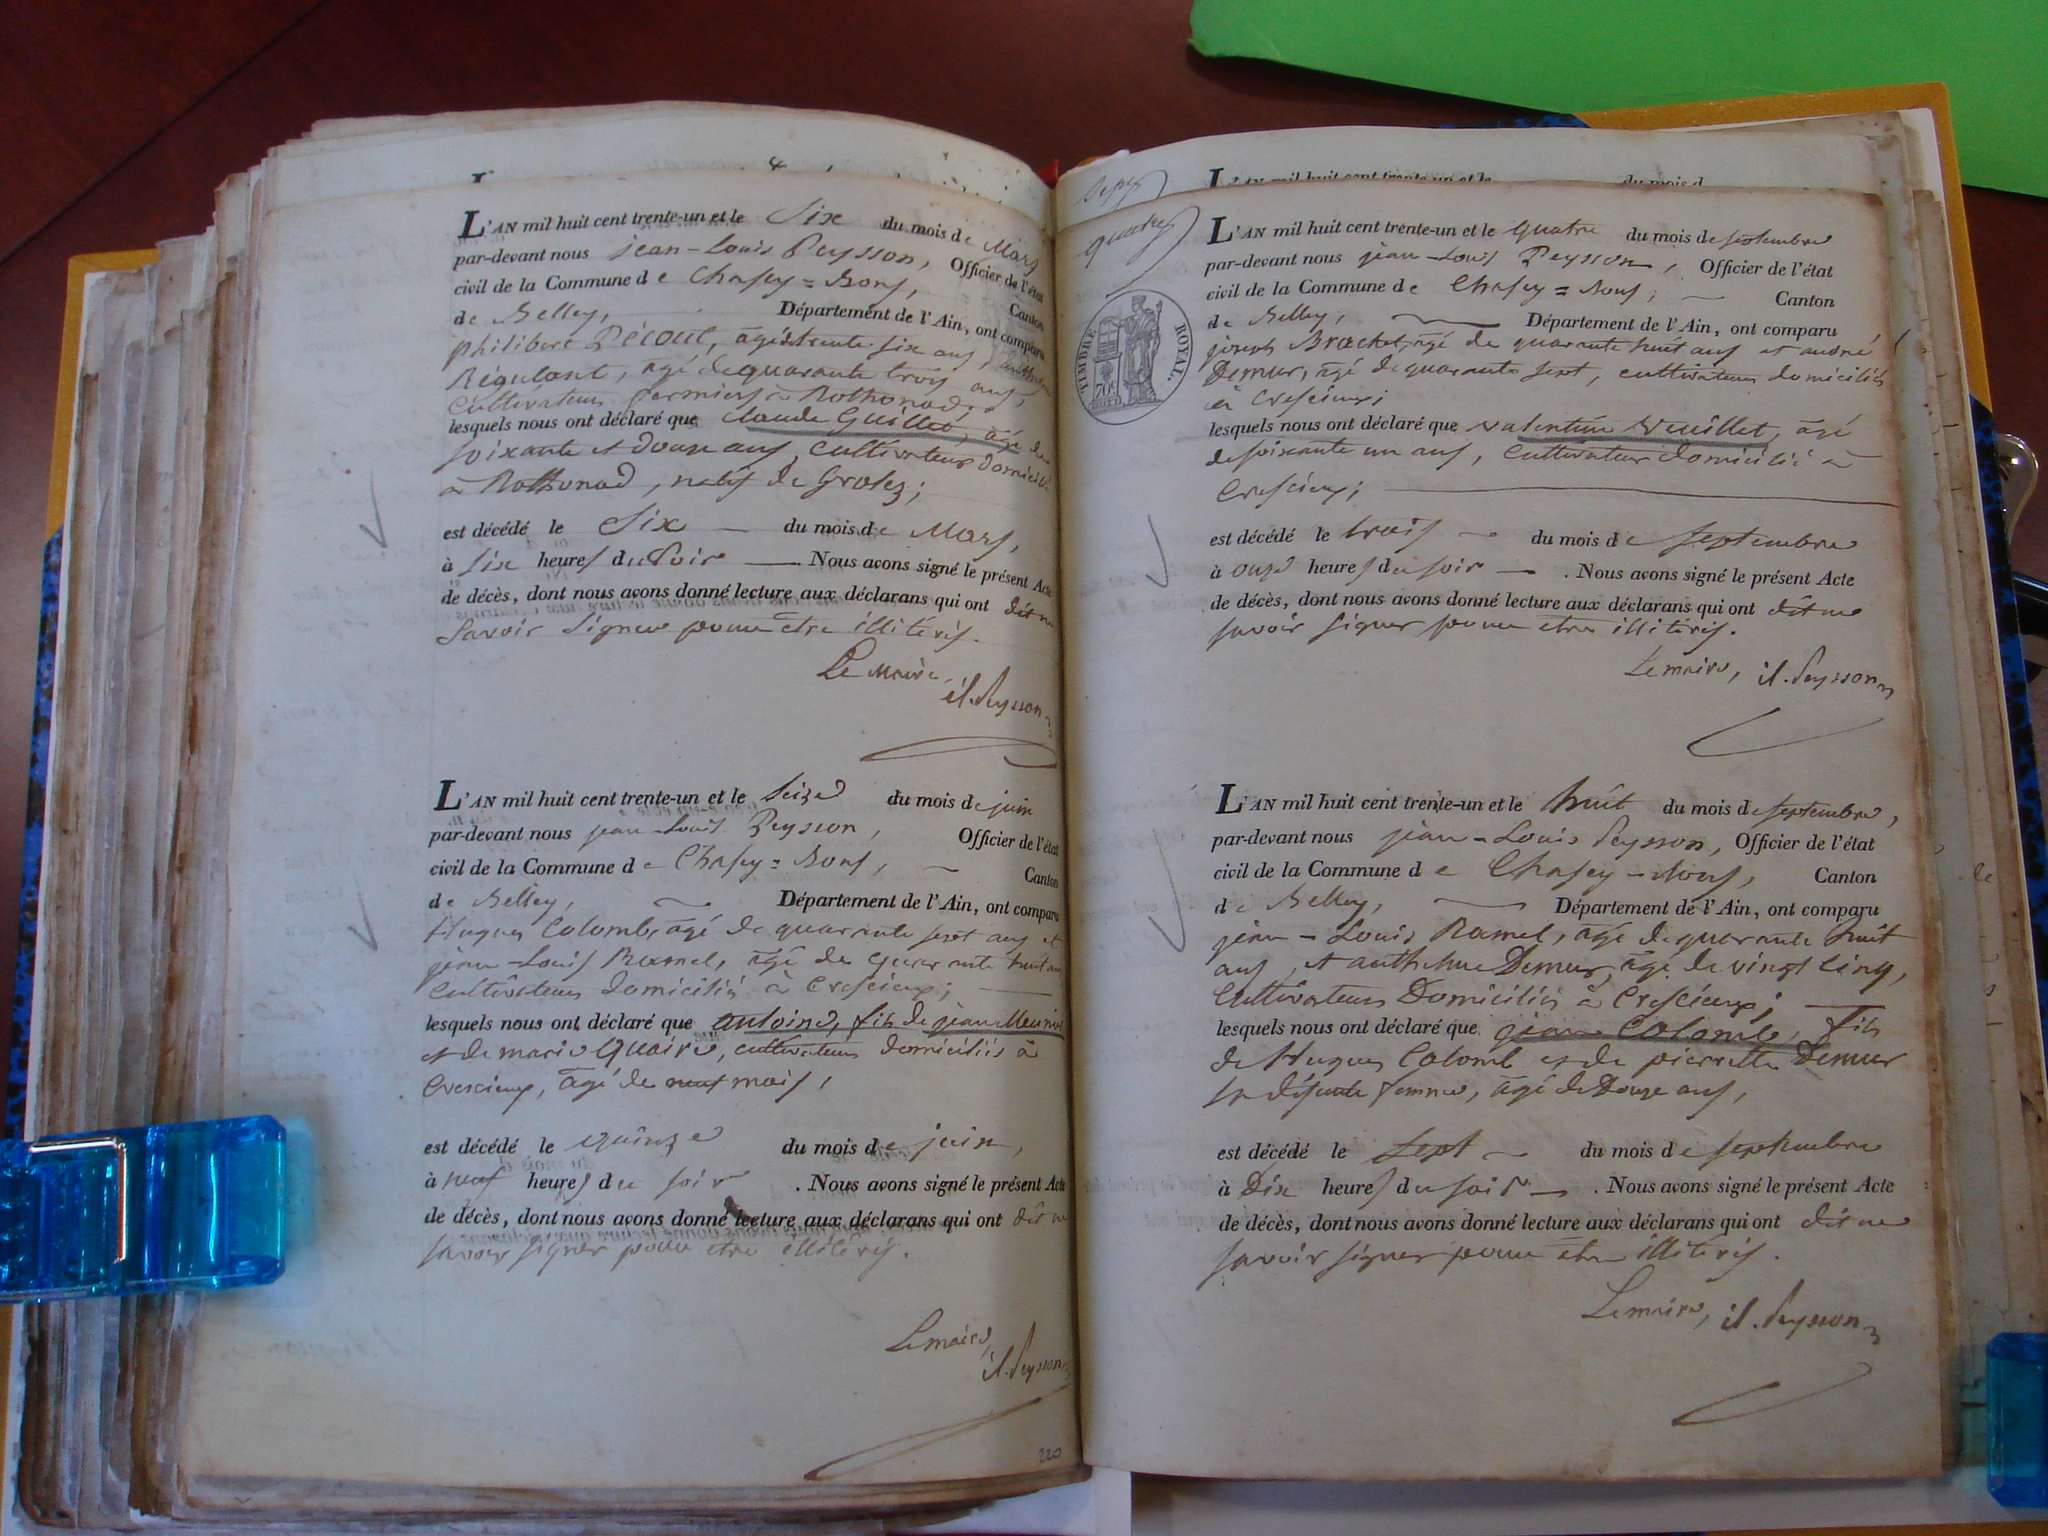 L'AN mil huit cent trente-un et le Six du mois de Mars
par-devant nous jean-Louis Peysson, Officier de l'état
civil de la Commune de Chasey=Bons, Canton
de Belley, Département de l'Ain, ont comparu
philibert Récoul, agé de trente six ans,
âgé de quarante trois ans,
Cultivateurs fermiers à Rothonod,
lesquels nous ont déclaré que Claude Guillet, âgé de
soixante et douze ans, cultivateur domicilié
à Rothonod, natif de
est décédé le Six du mois de Mars,
à Six heures du soir Nous avons signé le présent Acte
de décès, dont nous avons donné lecture aux déclarans qui ont dit ne
Savoir Signer pour etre illitérés.
Le Maire,
jl. Peysson
L'AN mil huit cent trente-un et le Seize du mois de juin
par-devant nous jean-Louis Peysson, Officier de l'état
civil de la Commune de Chasey=Bons, Canton
de Belley, Département de l'Ain, ont comparu
Hugues Colomb, âgé de quarante sept ans et
jean-Louis Ramel, âgé de quarante huit ans
Cultivateurs domiciliés à Crescieux;
lesquels nous ont déclaré que antoine, fils de jean Meunier
et de marie Guaire, cultivateurs domiciliés à
Crescieux, âgé de neuf mois,
est décédé le quinze du mois de juin,
à neuf heures du soir . Nous avons signé le présent Acte
de décès, dont nous avons donné lecture aux déclarans qui ont dit ne
savoir signer pour etre illitérés.
Le maire,
jl. Peysson
220
Sept
quatre
TIMBRE ROYAL.
70c
L'AN mil huit cent trente-un et le du mois d
L'AN mil huit cent trente-un et le quatre du mois de septembre
par-devant nous jean-Louis Peysson, Officier de l'état
civil de la Commune de Chasey=Bons, Canton
de Belley, Département de l'Ain, ont comparu
joseph Brachet, âgé de quarante huit ans et andré
Demur, âgé de quarante sept, cultivateurs domiciliés
à Crescieux;
lesquels nous ont déclaré que valentin Veuillet, âgé
de soixante un ans, Cultivateur domicilié à
Crescieux;
est décédé le trois du mois de septembre
à onze heures du soir . Nous avons signé le présent Acte
de décès, dont nous avons donné lecture aux déclarans qui ont dit ne
savoir signer pour etre illitérés.
Le maire, jl. Peysson
L'AN mil huit cent trente-un et le huit du mois de septembre,
par-devant nous jean-Louis Peysson, Officier de l'état
civil de la Commune de Chasey-Bons, Canton
de Belley, Département de l'Ain, ont comparu
jean-Louis Ramel, âgé de quarante huit
ans, et anthelme Demur, âgé de vingt cinq,
Cultivateurs Domiciliés à Crescieux;
lesquels nous ont déclaré que jean Colomb, fils
de Hugues Colomb et de pierrette Demur
sa défunte femme, âgé de Douze ans,
est décédé le Sept du mois de septembre
à Dix heures du soir . Nous avons signé le présent Acte
de décès, dont nous avons donné lecture aux déclarans qui ont dit ne
savoir signer pour etre illitérés.
Le maire, jl. Peysson